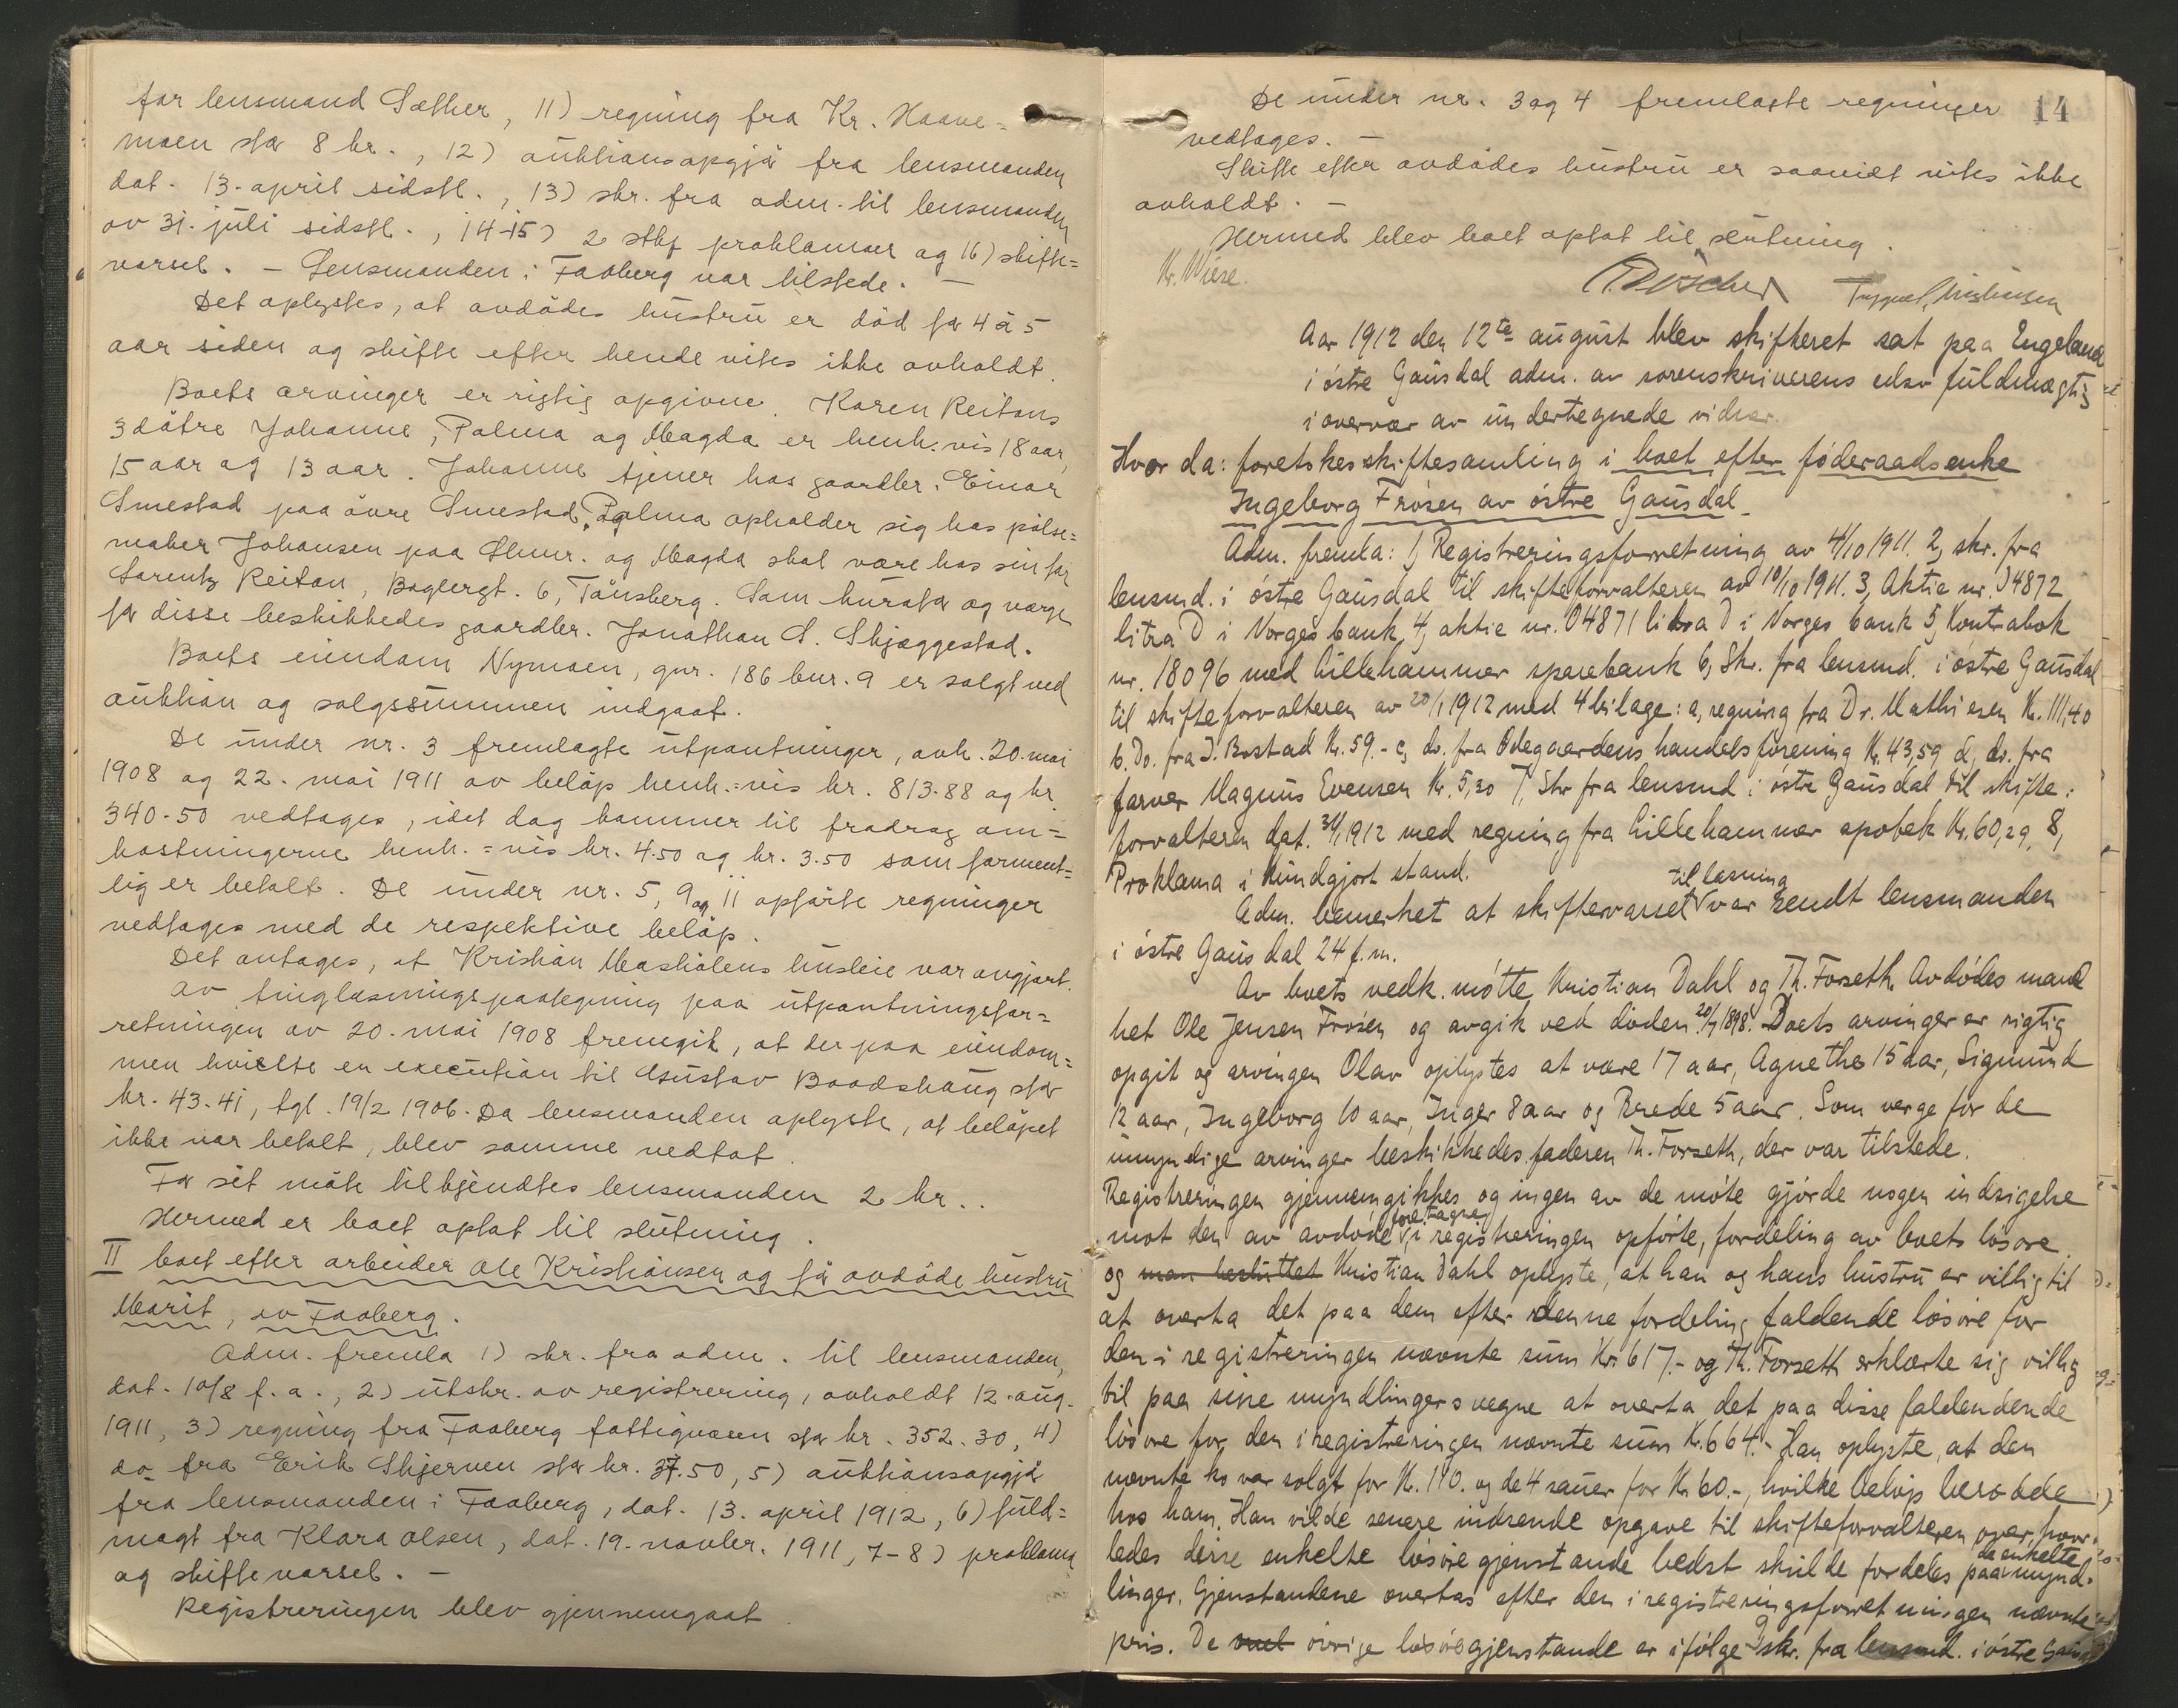 for lensmand Sæther, 11) regning fra Kr. Haave=
moen stor 8 kr., 12) auktionsopgjør fra lensmanden
dat. 13. april sidstl., 13) skr. fra adm. til lensmanden
av 31. juli sidstl., 14-15) 2 stkr proklamaer og 16) skifte=
varsel. – Lensmanden i Faaberg var tilstede. –
Det oplystes, at avdødes hustru er død for 4 à 5
aar siden og skifte efter hende vites ikke avholdt.
Boets arvinger er rigtig opgivne. Karen Reitans
3 døtre Johanne, Palma og Magda er henh.vis 18 aar,
15 aar og 13 aar. Johanne tjener hos gaardbr. Einar
Smestad paa øvre Smestad, Palma opholder sig hos pølse=
maker Johansen paa Lhmr. og Magda skal være hos sin far
Lorentz Reitan, Baglergt. 6, Tønsberg. Som kurator og verge
for disse beskikkedes gaardbr. Jonathan S. Skjæggestad.
Boets eiendom Nymoen, gnr. 186 bnr. 9 er solgt ved
auktion og salgssummen indgaat.
De under nr. 3 fremlagte utpantninger, avh. 20. mai
1908 og 22. mai 1911 av beløp henh.=vis kr. 813.88 og kr.
340.50 vedtages, idet dog kommer til fradrag om=
kostningerne henh.=vis kr. 4.50 og kr. 3.50 som forment=
lig er betalt. De under nr. 5, 9 og 11 opførte regninger
vedtages med de respektive beløp.
Det antages, at Kristian Maskolens husleie var avgjort.
Av tinglæsningspaategning paa utpantningsfor=
retningen av 20. mai 1908 fremgik, at der paa eiendom=
men hvilte en execution til Gustav Baadshaug stor
kr. 43.41, tgl. 19/2 1906. Da lensmanden oplyste, at beløpet
ikke var betalt, blev samme vedtat.
For sit møte tilkjendtes lensmanden 2 kr..
Hermed er boet optat til slutning.
II boet efter arbeider Ole Kristiansen og før avdøde hustru
Marit, av Faaberg.
Adm. fremla 1) skr. fra adm. til lensmanden,
dat. 10/8 f. a., 2) utskr. av registrering, avholdt 12. aug.
1911, 3) regning fra Faaberg fattigvæsen stor kr. 352.30, 4)
do fra Erik Skjerven stor kr. 37.50, 5) auktionsopgjør
fra lensmanden i Faaberg, dat. 13. april 1912, 6) fuld=
magt fra Klara Olsen, dat. 19. novbr. 1911, 7-8) proklama
og skiftevarsel. –
Registreringen blev gjennemgaat.
14
De under nr. 3 og 4 fremlagte regninger
vedtages. –
Skifte efter avdødes hustru er saavidt vites ikke
avholdt. –
Hermed blev boet optat til slutning.
Kr. Wiese.
Aar 1912 den 12te august blev skifteret sat paa Engeland
i østre Gausdal adm. av sorenskriverens edsv. fuldmægtig
i overvær av undertegnede vidner.
Hvor da: foretokes skiftesamling i boet efter føderaadsenke
Ingeborg Frøsen av østre Gausdal.
Adm. fremla: 1, Registreringsforretning av 4/10 1911. 2, skr. fra
lensmd. i østre Gausdal til skifteforvalteren av 10/10 1911. 3, Aktie nr. 04872
litra D i Norges bank, 4, aktie nr. 04871 litra D i Norges bank 5, Kontrabok
nr. 18096 med Lillehammer sparebank 6, Skr. fra lensmd. i østre Gausdal
til skifteforvalteren av 20/1 1912 med 4 bilage: a, regning fra Dr. Mathiesen Kr. 111,40
b. Do. fra J. Bostad Kr. 59.- c, do. fra Ødegaardens handelsforening Kr. 43,59 d, do. fra
farver Magnus Evensen Kr. 5,20 7, Skr fra lensmd i østre Gausdal til skifte-
forvalteren dat. 31/1 1912 med regning fra Lillehammer apotek Kr. 60,29, 8,
Proklama i kundgjort stand.
Adm. bemerket at skiftevarslet til læsning var sendt lensmanden
i østre Gausdal 24 f.m.
Av boets vedk. møtte Kristian Dahl og Th. Forseth. Avdødes mand
het Ole Jensen Frøsen og avgik ved døden 20/7 1898. Boets arvinger er rigtig
opgit og arvingen Olav oplystes at være 17 aar, Agnethe 15 aar, Sigmund
12 aar, Ingeborg 10 aar, Inger 8 aar og Brede 5 aar. Som verge for de
umyndige arvinger beskikkedes faderen Th. Forseth, der var tilstede.
Registreringen gjennemgikkes og ingen av de møte gjorde nogen indsigelse
mot den av avdøde foretagne, i registreringen opførte, fordeling av boets løsøre
og man besluttet Kristian Dahl oplyste, at han og hans hustru er villig til
at overta det paa dem efter denne fordeling faldende løsøre for
den i registreringen nævnte sum Kr 617.- og Th. Forseth erklærte sig villig
til paa sine myndlingers vegne at overta det paa disse faldendende
løsøre for den i registreringen nævnte sum Kr. 664.- Han oplyste, at den
nævnte ko var solgt for Kr. 110. og de 4 sauer for Kr 60.-, hvilke beløp beroede
hos ham. Han vilde senere indsende opgave til skifteforvalteren over hvor-
ledes disse enkelte løsøregjenstande bedst skulde fordeles paa de enkelte mynd-
linger. Gjenstandene overtas efter den i registreringsforretningen nævnte
pris. De øvrige løsøregjenstande er ifølge skr. fra lensmd. i østre Gausdal